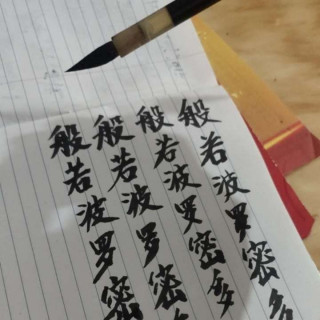 般若波罗密多
般若波罗密多
般若波罗密
般若波罗密